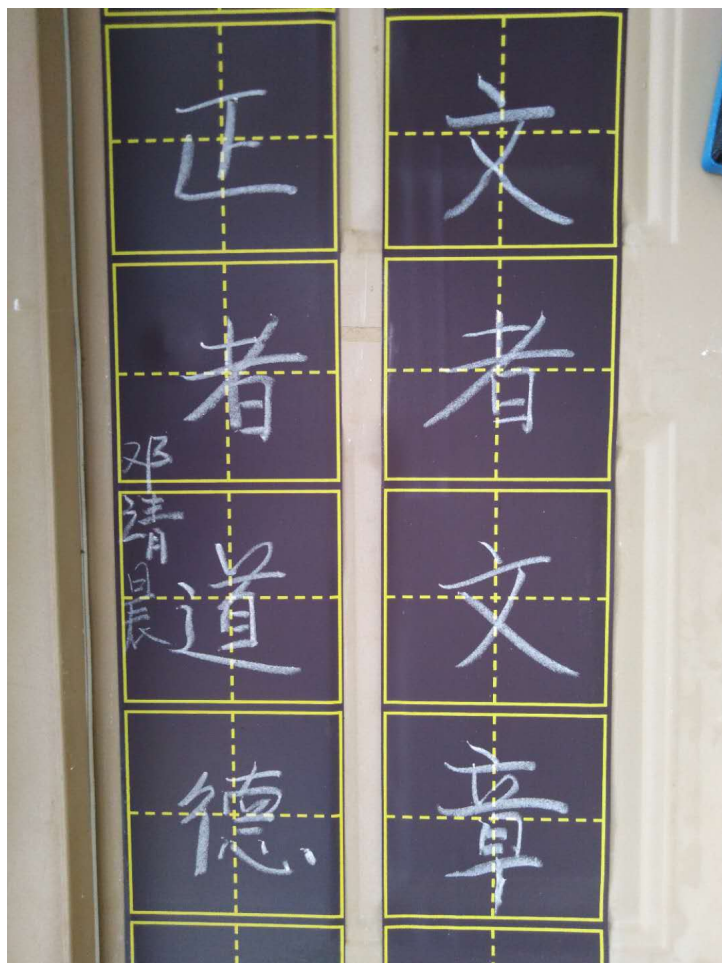 文者文章
正者道德
邓靖晨